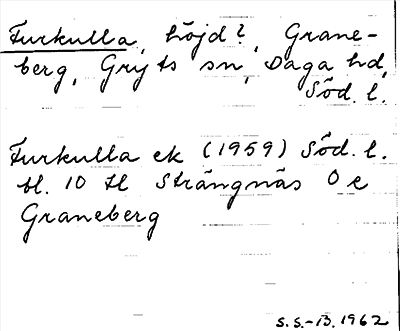 Furkulla, höjd?, Grane-
berg, Gryts sn, Daga hd,
Söd. l.
Furkulla ek (1959) Söd. l.
bl. 10 H Strängnäs O e
Graneberg
S.S.-B. 1962